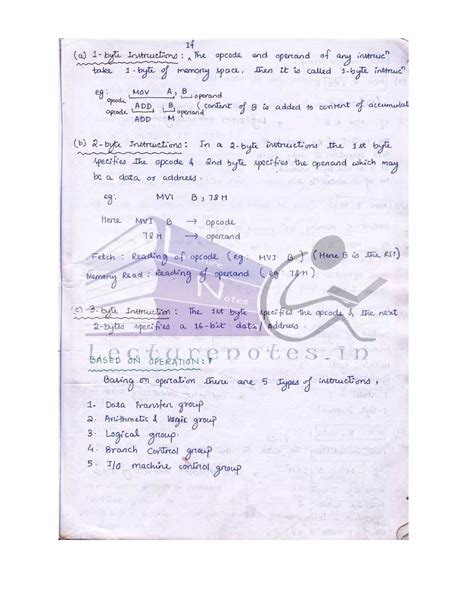 If
(a) 1-byte Instructions: The opcode and operand of any instrucⁿ
take 1-byte of memory space, then it is called 1-byte instrucⁿ
eg: MOV A, B
opcode operand
ADD B (content of B is added to content of accumulat
opcode operand
ADD M
(b) 2-byte Instructions: In a 2-byte instructions the 1st byte
specifies the opcode & 2nd byte specifies the operand which may
be a data or address.
eg: MVI B, 78H
Here MVI B → opcode
78H → operand
Fetch: Reading of opcode (eg MVI B) (Here B is the
Memory Read: Reading of operand (eg: 78H)
(c) 3-byte Instruction: The 1st byte specifies the opcode & the next
2-bytes specifies a 16-bit data/Address.
Lecturenotes.in
BASED ON OPERATION:
Basing on operation there are 5 types of instructions,
1. Data Transfer group
2. Arithmetic & logic group
3. Logical group.
4. Branch Control group
5. I/O machine control group